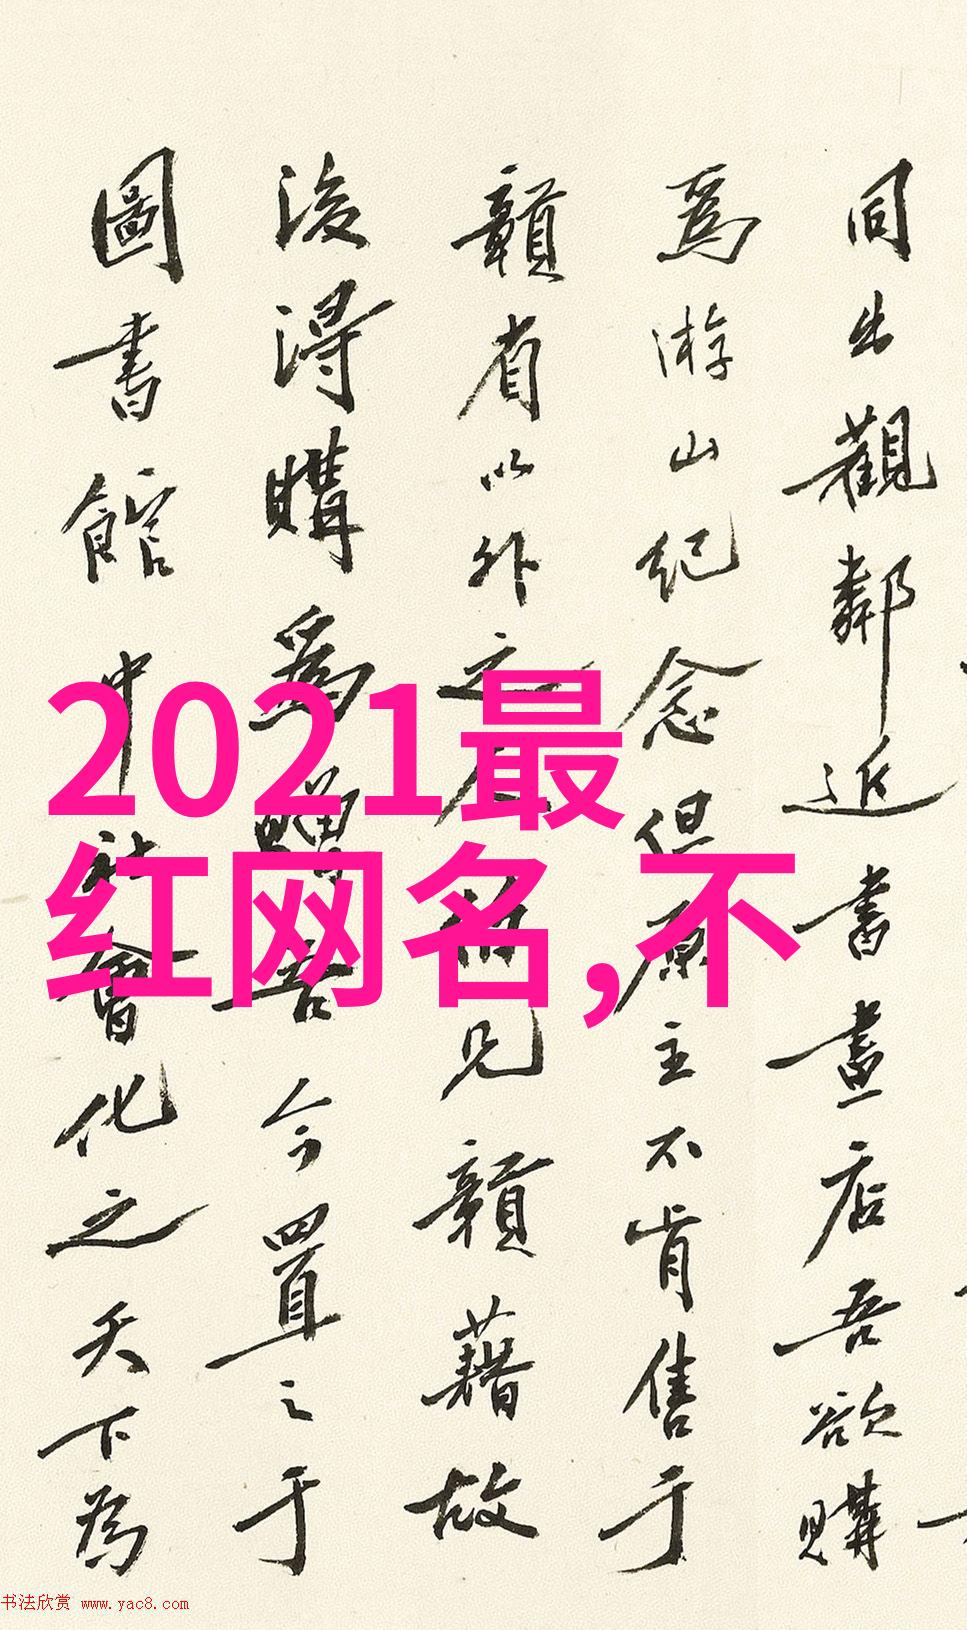 同出觀鄰近書畫店吾欲購
爲游山紀念但原主不肯售于
贛省以外之人前見贛藉故
後得購爲贈吾今置之于
圖書館中社會化之天下為
2021最
红网名,不
书法欣赏 www.yac8.com